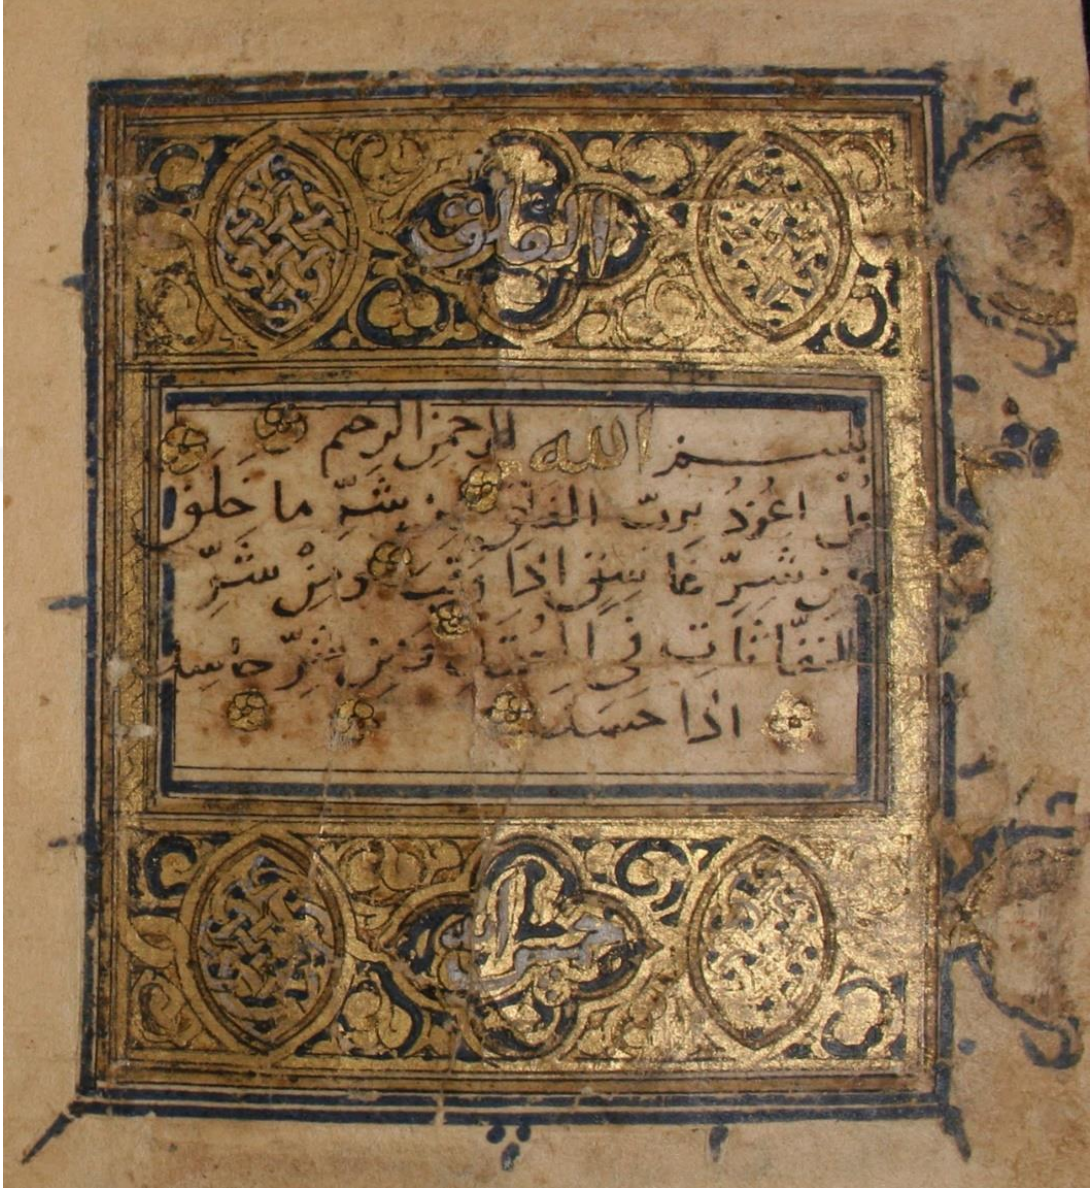 الفلق
بسم الله الرحمن الرحيم
قل اعُوذُ بِربّ الفلق مِن شرِّ ما خلق
ومِن شرِّ غاسِقٍ اذا وقب ومِنْ شرِّ
النفّاثاتِ في العُقدِ ومِن شرِّ حاسِدٍ
اذا حسد